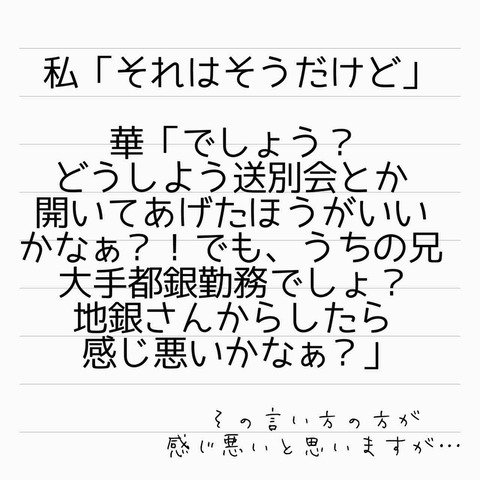 私「それはそうだけど」
華「でしょう？
どうしよう送別会とか
開いてあげたほうがいい
かなぁ？！でも、うちの兄
大手都銀勤務でしょ？
地銀さんからしたら
感じ悪いかなぁ？」
その言い方の方が
感じ悪いと思いますが…